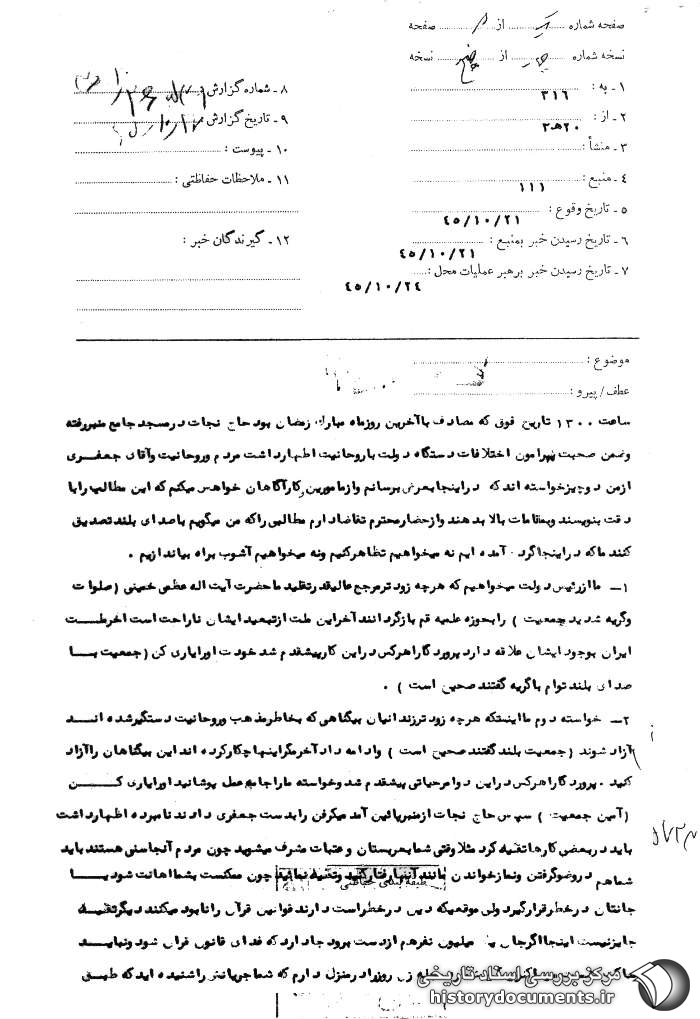 صفحه شماره ........ از ........ صفحه
نسخه شماره ........ از پنج نسخه
۱ـ به : ۳۱۶
۲ـ از : ۲۰هـ۳
۳ـ منشأ :
۴ـ منبع : ۱۱۱
۵ـ تاریخ وقوع : ۴۵/۱۰/۲۱
۶ـ تاریخ رسیدن خبر بمنبع : ۴۵/۱۰/۲۱
۷ـ تاریخ رسیدن خبر برهبر عملیات محل : ۴۵/۱۰/۲۴
۸ـ شماره گزارش
۹ـ تاریخ گزارش
۱۰ـ پیوست :
۱۱ـ ملاحظات حفاظتی :
۱۲ـ گیرندگان خبر :
موضوع :
عطف/ پیرو :
ساعت ۱۳۰۰ تاریخ فوق که مصادف باآخرین روزماه مبارک رمضان بود حاج نجات درمسجد جامع منبررفته
وضمن صحبت پیرامون اختلافات دستگاه دولت باروحانیت اظهارداشت مردم وروحانیت وآقای جعفری
ازمن دوچیزخواسته اند که دراینجا بعرض برسانم وازمامورین وکارآگاهان خواهش میکنم که این مطالب رابا
دقت بنویسند وبمقامات بالا بدهند وازحضارمحترم تقاضادارم مطالبی راکه من میگویم باصدای بلند تصدیق
کنند ماکه دراینجاگرد آمده ایم نه میخواهیم تظاهرکنیم ونه میخواهیم آشوب براه بیاندازیم .
۱ـ ماازرئیس دولت میخواهیم که هرچه زودترمرجع عالیقدرتقلید ماحضرت آیت اله عظمی خمینی (صلوات
وگریه شدید جمعیت ) رابحوزه علمیه قم بازگردانند آخراین ملت ازتبعید ایشان ناراحت است آخرملت
ایران بوجود ایشان علاقه دارد پروردگاراهرکس دراین کارپیشقدم شد خودت اورایاری کن (جمعیت با
صدای بلند توام باگریه گفتند صحیح است ) .
۲ـ خواسته دوم مااینستکه هرچه زودترزندانیان بیگناهی که بخاطرمذهب وروحانیت دستگیرشده اند
آزاد شوند (جمعیت بلند گفتند صحیح است ) وادامه داد آخرمگراینها چکارکرده اند این بیگناهان راآزاد
کنید . پروردگاراهرکس دراین دوامرحیاتی پیشقدم شد وخواسته ماراجامه عمل پوشانید اورایاری کن
(آمین جمعیت ) سپس حاج نجات ازمنبرپائین آمد میکرفن رابدست جعفری دادند نامبرده اظهارداشت
باید دربعضی کارها تقیه کرد مثلا وقتی شما بعربستان وعتبات مشرف میشوید چون مردم آنجاسنی هستند باید
شماهم دروضوگرفتن ونمازخواندن مانند آنها رفتارکنید وتقیه نمائید چون ممکنست بشما اهانت شود یا
طبقه بندی حفاظتی
جانتان درخطرقرارگیرد ولی موقعیکه دین درخطراست دارند قوانین قرآن رانابود میکنند دیگرتقیه
جایزنیست اینجااگرجان یک میلیون نفرهم ازدست برود جادارد که فدای قانون قرآن شود ونباید
روزرادرمنزل دارم که شماجریانش راشنیده اید که طبق
مرکز بررسی اسناد تاریخی
historydocuments.ir